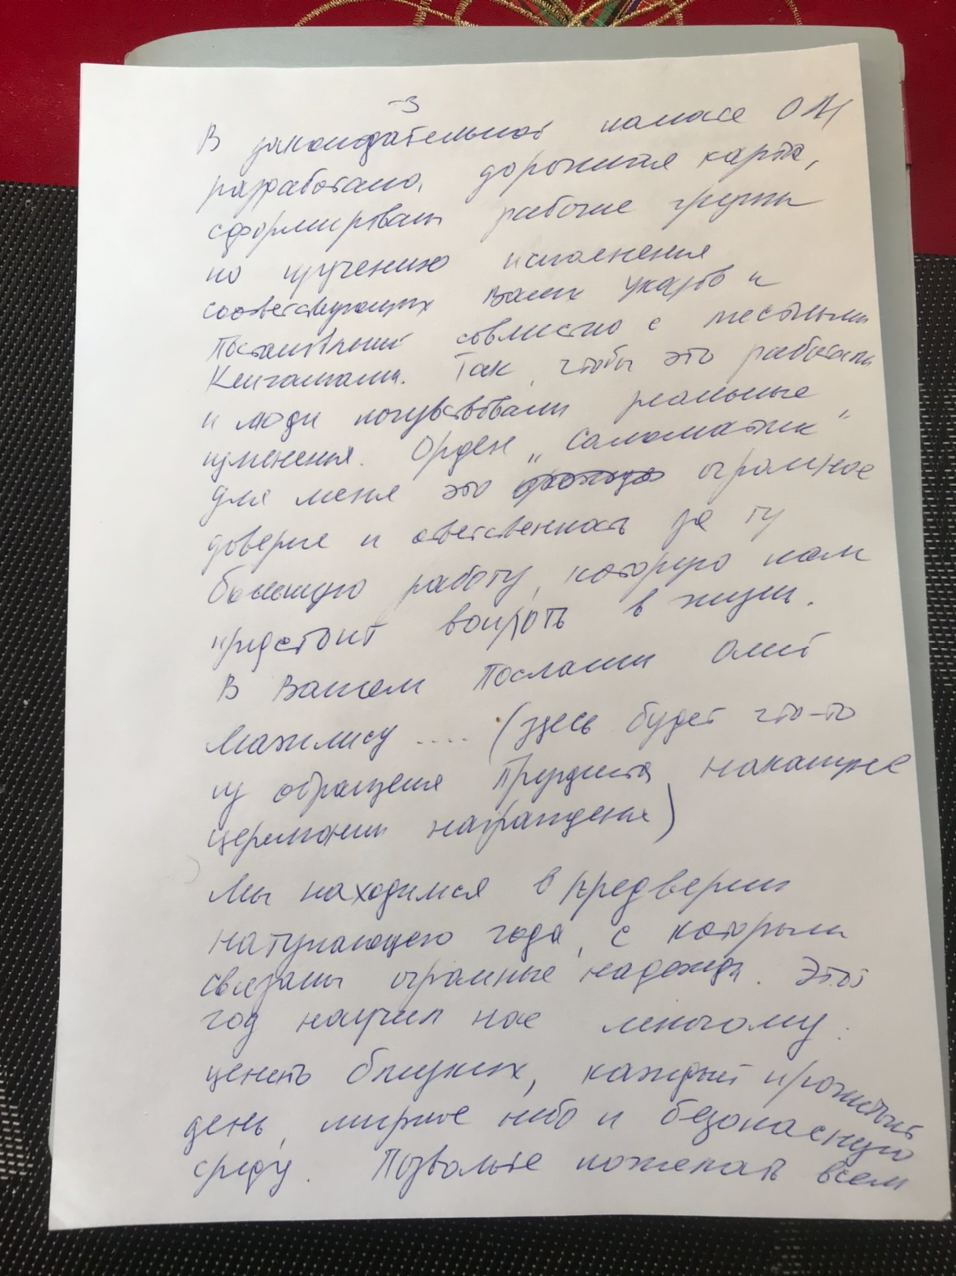 3
В законодательной палате ОМ
разработана дорожная карта,
сформированы рабочие группы
по изучению исполнения
соответствующих Ваших Указов и
Постановлений совместно с местными
Кенгашами. Так, чтобы это работали
и люди почувствовали реальные
изменения. Орден "Саломатлик"
для меня это огромное
доверие и ответственность за ту
большую работу, которую нам
предстоит воплоть в жизни.
В Вашем Послании Олий
Мажлису .... (здесь будет что-то
из обращения Президента, накануне
церемонии награждения)
Мы находимся в преддверии
наступающего года, с которым
связаны огромные надежды. Этот
год научил нас многому.
ценить близких, каждый прожитый
день, мирное небо и безопасную
среду. Позвольте пожелать всем